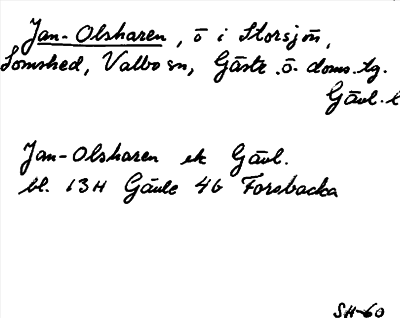 Jan-Olsharen, ö i Storsjön,
Lomshed, Valbo sn, Gästr. ö. doms. tg.
Gävl. l
Jan-Olsharen ek Gävl.
bl. 13H Gävle 4b Forsbacka
SH-60